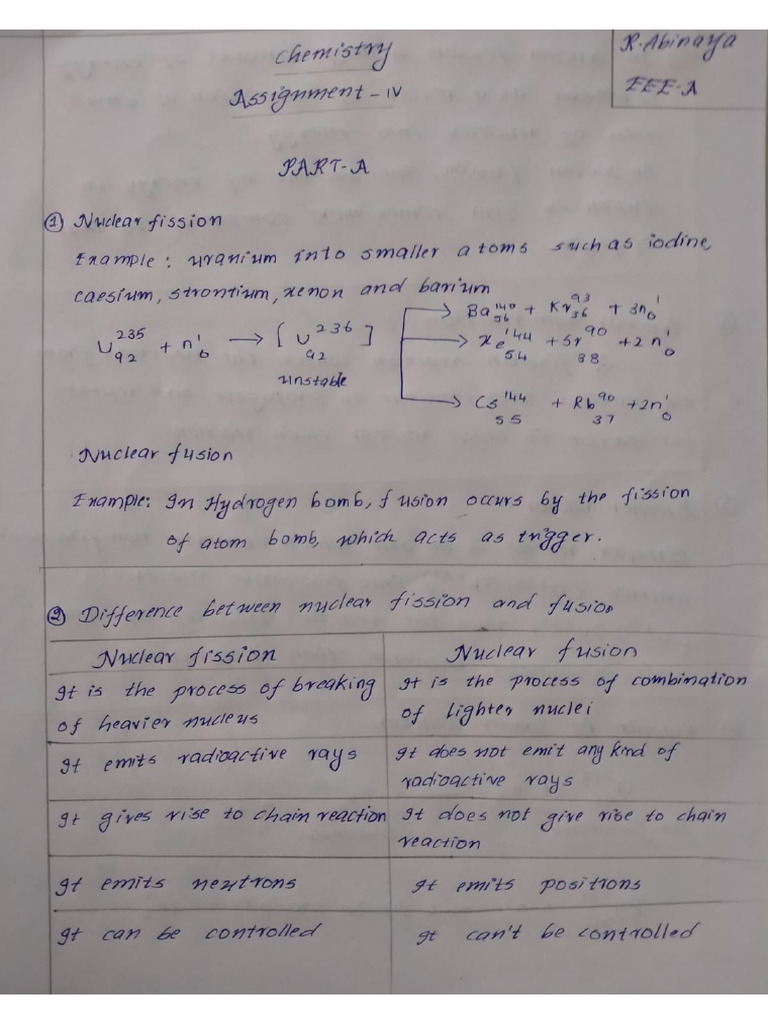 Chemistry
R. Abinaya
Assignment - IV
EEE-A
PART-A
① Nuclear fission
Example: uranium into smaller atoms such as iodine,
caesium, strontium, xenon and barium
U²³⁵₉₂ + n¹₀ → [U²³⁶₉₂] unstable
→ Ba¹⁴⁰₅₆ + Kr⁹³₃₆ + 3n¹₀
→ Xe¹⁴⁴₅₄ + Sr⁹⁰₃₈ + 2n¹₀
→ Cs¹⁴⁴₅₅ + Rb⁹⁰₃₇ + 2n¹₀
Nuclear fusion
Example: In Hydrogen bomb, fusion occurs by the fission
of atom bomb, which acts as trigger.
② Difference between nuclear fission and fusion
Nuclear fission
Nuclear fusion
It is the process of breaking
of heavier nucleus
It is the process of combination
of lighter nuclei
It emits radioactive rays
It does not emit any kind of
radioactive rays
It gives rise to chain reaction
It does not give rise to chain
reaction
It emits neutrons
It emits positrons
It can be controlled
It can't be controlled